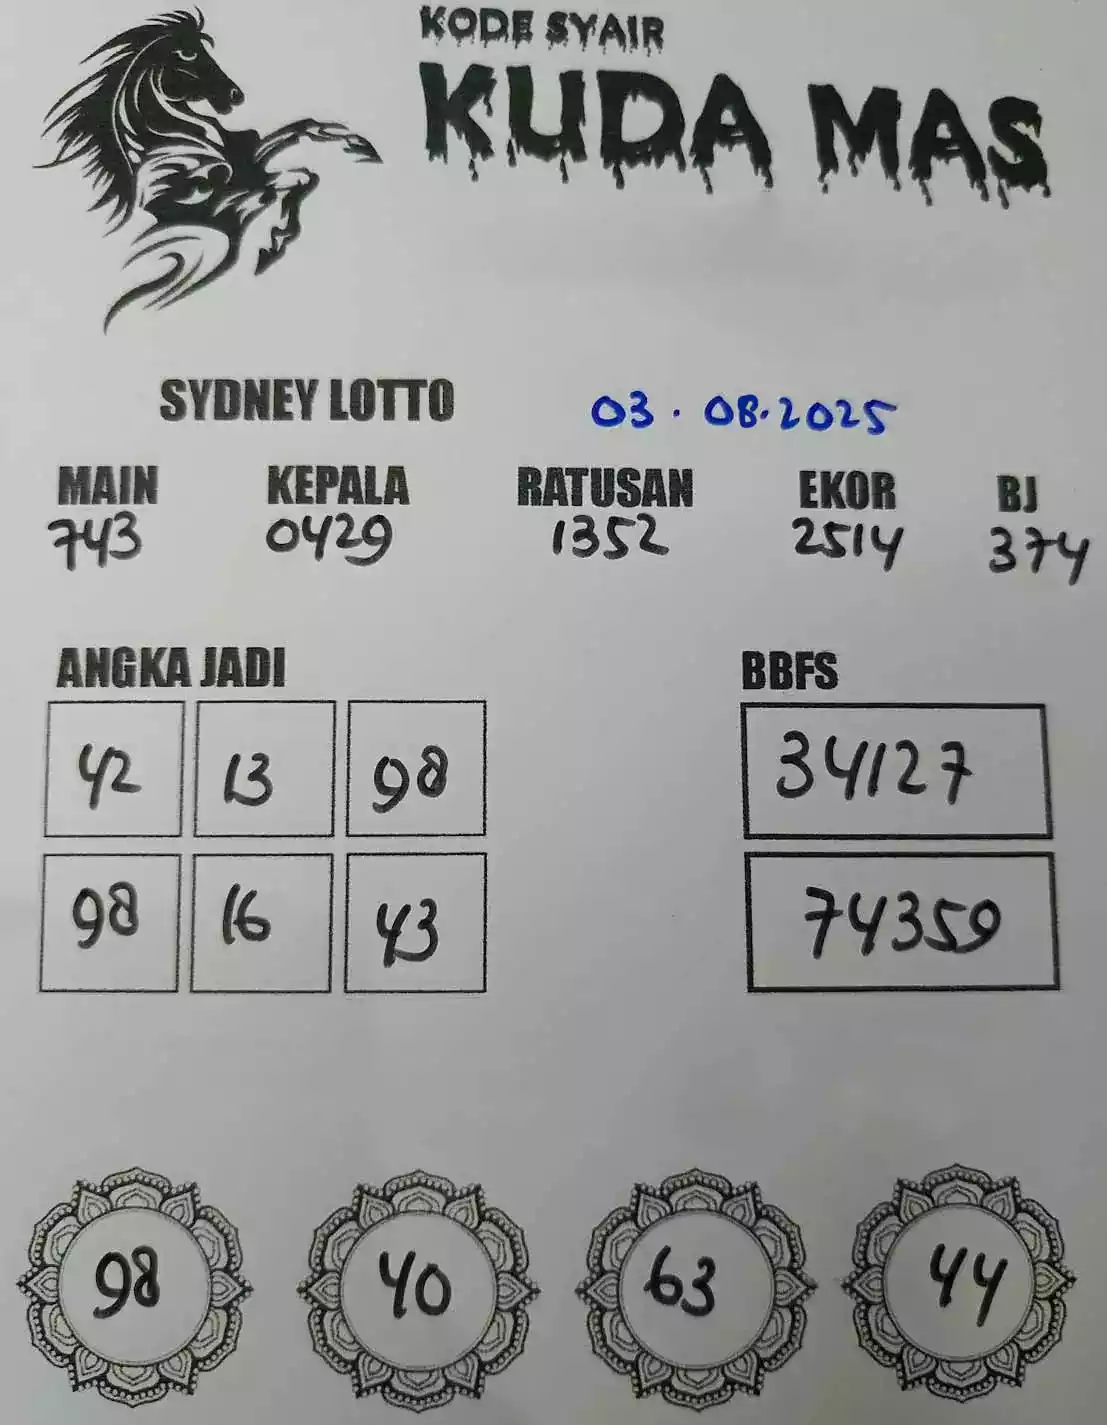 KODE SYAIR
KUDA MAS
SYDNEY LOTTO 03.08.2025
MAIN KEPALA RATUSAN EKOR BJ
743 0429 1352 2514 374
ANGKA JADI BBFS
42 13 98 34127
98 16 43 74359
98 40 63 44